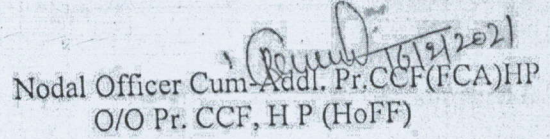 16/2/2021
Nodal Officer Cum-Addl. Pr.CCF(FCA)HP
O/O Pr. CCF, H P (HoFF)